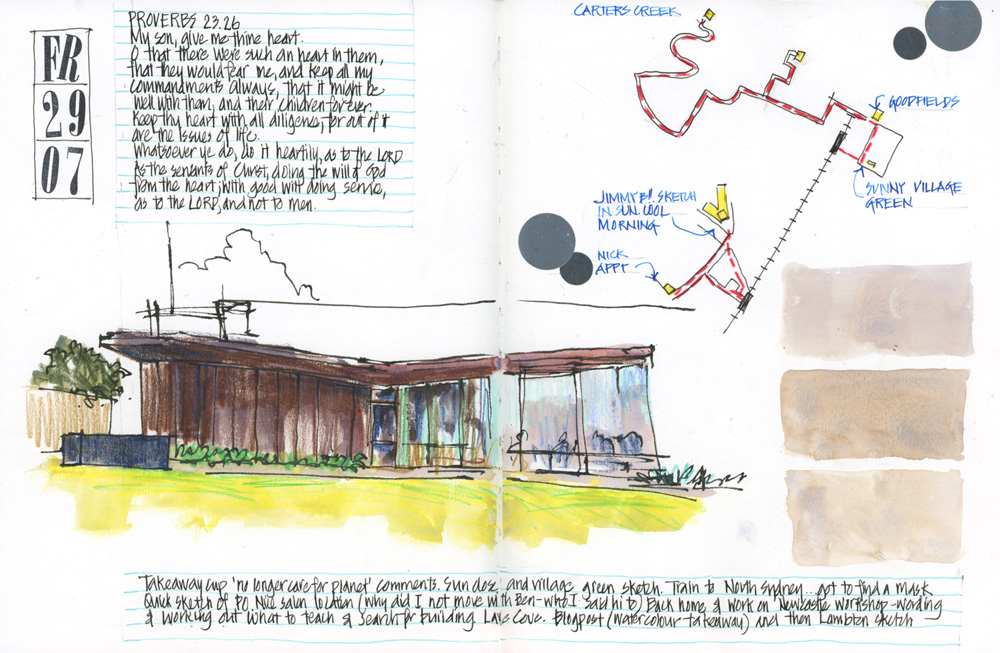 FR
29
07
PROVERBS 23.26
My son, give me thine heart.
O that there were such an heart in them,
that they would fear me, and keep all my
commandments always, that it might be
well with them, and their children for ever.
Keep thy heart with all diligence; for out of it
are the issues of life.
Whatsoever ye do, do it heartily, as to the LORD
As the servants of Christ, doing the will of God
from the heart; with good will doing service,
as to the LORD, and not to men.
CARTERS CREEK
GOODFIELDS
SUNNY VILLAGE
GREEN
SKETCH
IN SUN. COOL
MORNING
NICK
APPT
Takeaway cup 'no longer care for planet' comments. Sun dose and village green sketch. Train to North Sydney... got to find a mask
Quick sketch of PO. Nice salon location (why did I not move with Ben - who I said hi to) Back home & work on Newcastle workshop - wording
& working out what to teach & search for building Lane Cove. Blogpost (watercolour takeaway) and then Lambton sketch